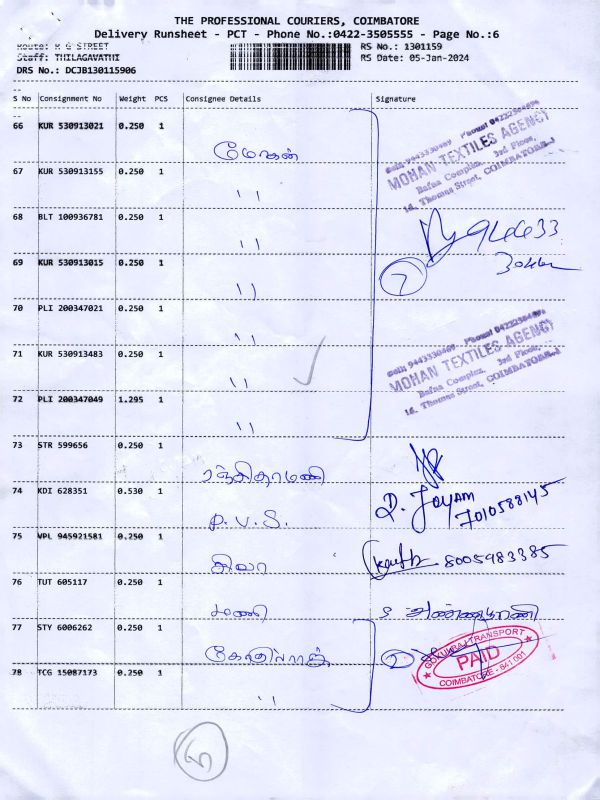 THE PROFESSIONAL COURIERS, COIMBATORE
Delivery Runsheet - PCT - Phone No.:0422-3505555 - Page No.:6
Route: K G STREET RS No.: 1301159
Staff: THILAGAVATHI RS Date: 05-Jan-2024
DRS No.: DCJB130115906
S No Consignment No Weight PCS Consignee Details Signature
66 KUR 530913021 0.250 1 மோகன்
MOHAN TEXTILES AGENCY
Bafna Complex, 3rd Floor,
16, Thomas Street, COIMBATORE-1
67 KUR 530913155 0.250 1 ''
68 BLT 100936781 0.250 1 ''
69 KUR 530913015 0.250 1 '' 7
70 PLI 200347021 0.250 1 ''
MOHAN TEXTILES AGENCY
Bafna Complex, 3rd Floor,
16, Thomas Street, COIMBATORE-1
71 KUR 530913483 0.250 1 ''
72 PLI 200347049 1.295 1 ''
73 STR 599656 0.250 1
74 KDI 628351 0.530 1 P.V.S. D. Jayam
7010588145
75 WPL 945921581 0.250 1 சிவா 8005983385
76 TUT 605117 0.250 1 மணி
77 STY 6006262 0.250 1 2
GOKULRAJ TRANSPORT
PAID
COIMBATORE - 641 001
78 TCG 15087173 0.250 1 ''
5